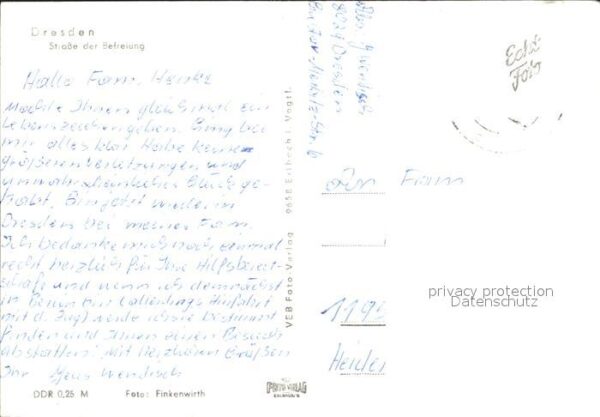 Dresden
Straße der Befreiung
Hallo Fam. Henke
Möchte Ihnen gleich mal ein
Lebenszeichen geben. Ging bei
mir alles klar. Habe keine
größeren Verletzungen und
unwahrscheinliches Glück ge-
habt. Bin jetzt wieder in
Dresden bei meiner Fam.
Ich bedanke mich noch einmal
recht herzlich für Ihre Hilfsbereit-
schaft und wenn ich demnächst
in Berlin bin (allerdings
mit d. Zug) werde ich sie bestimmt
finden und Ihnen einen Besuch
abstatten. Mit herzlichen Grüßen
Ihr Jens Wendisch
DDR 0,25 M Foto: Finkenwirth
VEB Foto-Verlag 9658 Erlbach i. Vogtl.
Wendisch
Dresden
Echt
Foto
FOTO-VERLAG
ERLBACH
Fam
119
Heide
privacy protection
Datenschutz